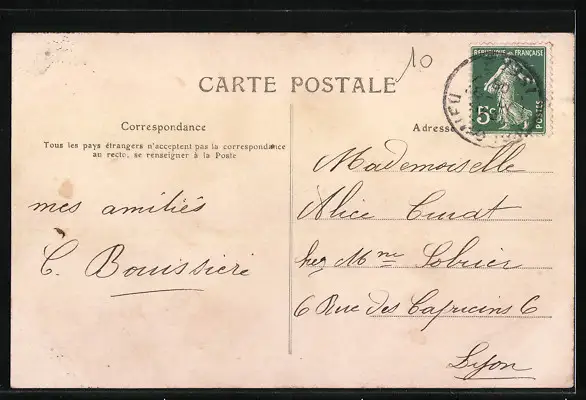 10
REPUBLIQUE FRANÇAISE
5c
POSTES
CARTE POSTALE
Correspondance
Tous les pays étrangers n'acceptent pas la correspondance
au recto, se renseigner à la Poste
mes amitiés
C. Bouissière
Adresse
Mademoiselle
Alice Curat
chez Mme
6 Rue des Capucins 6
Lyon